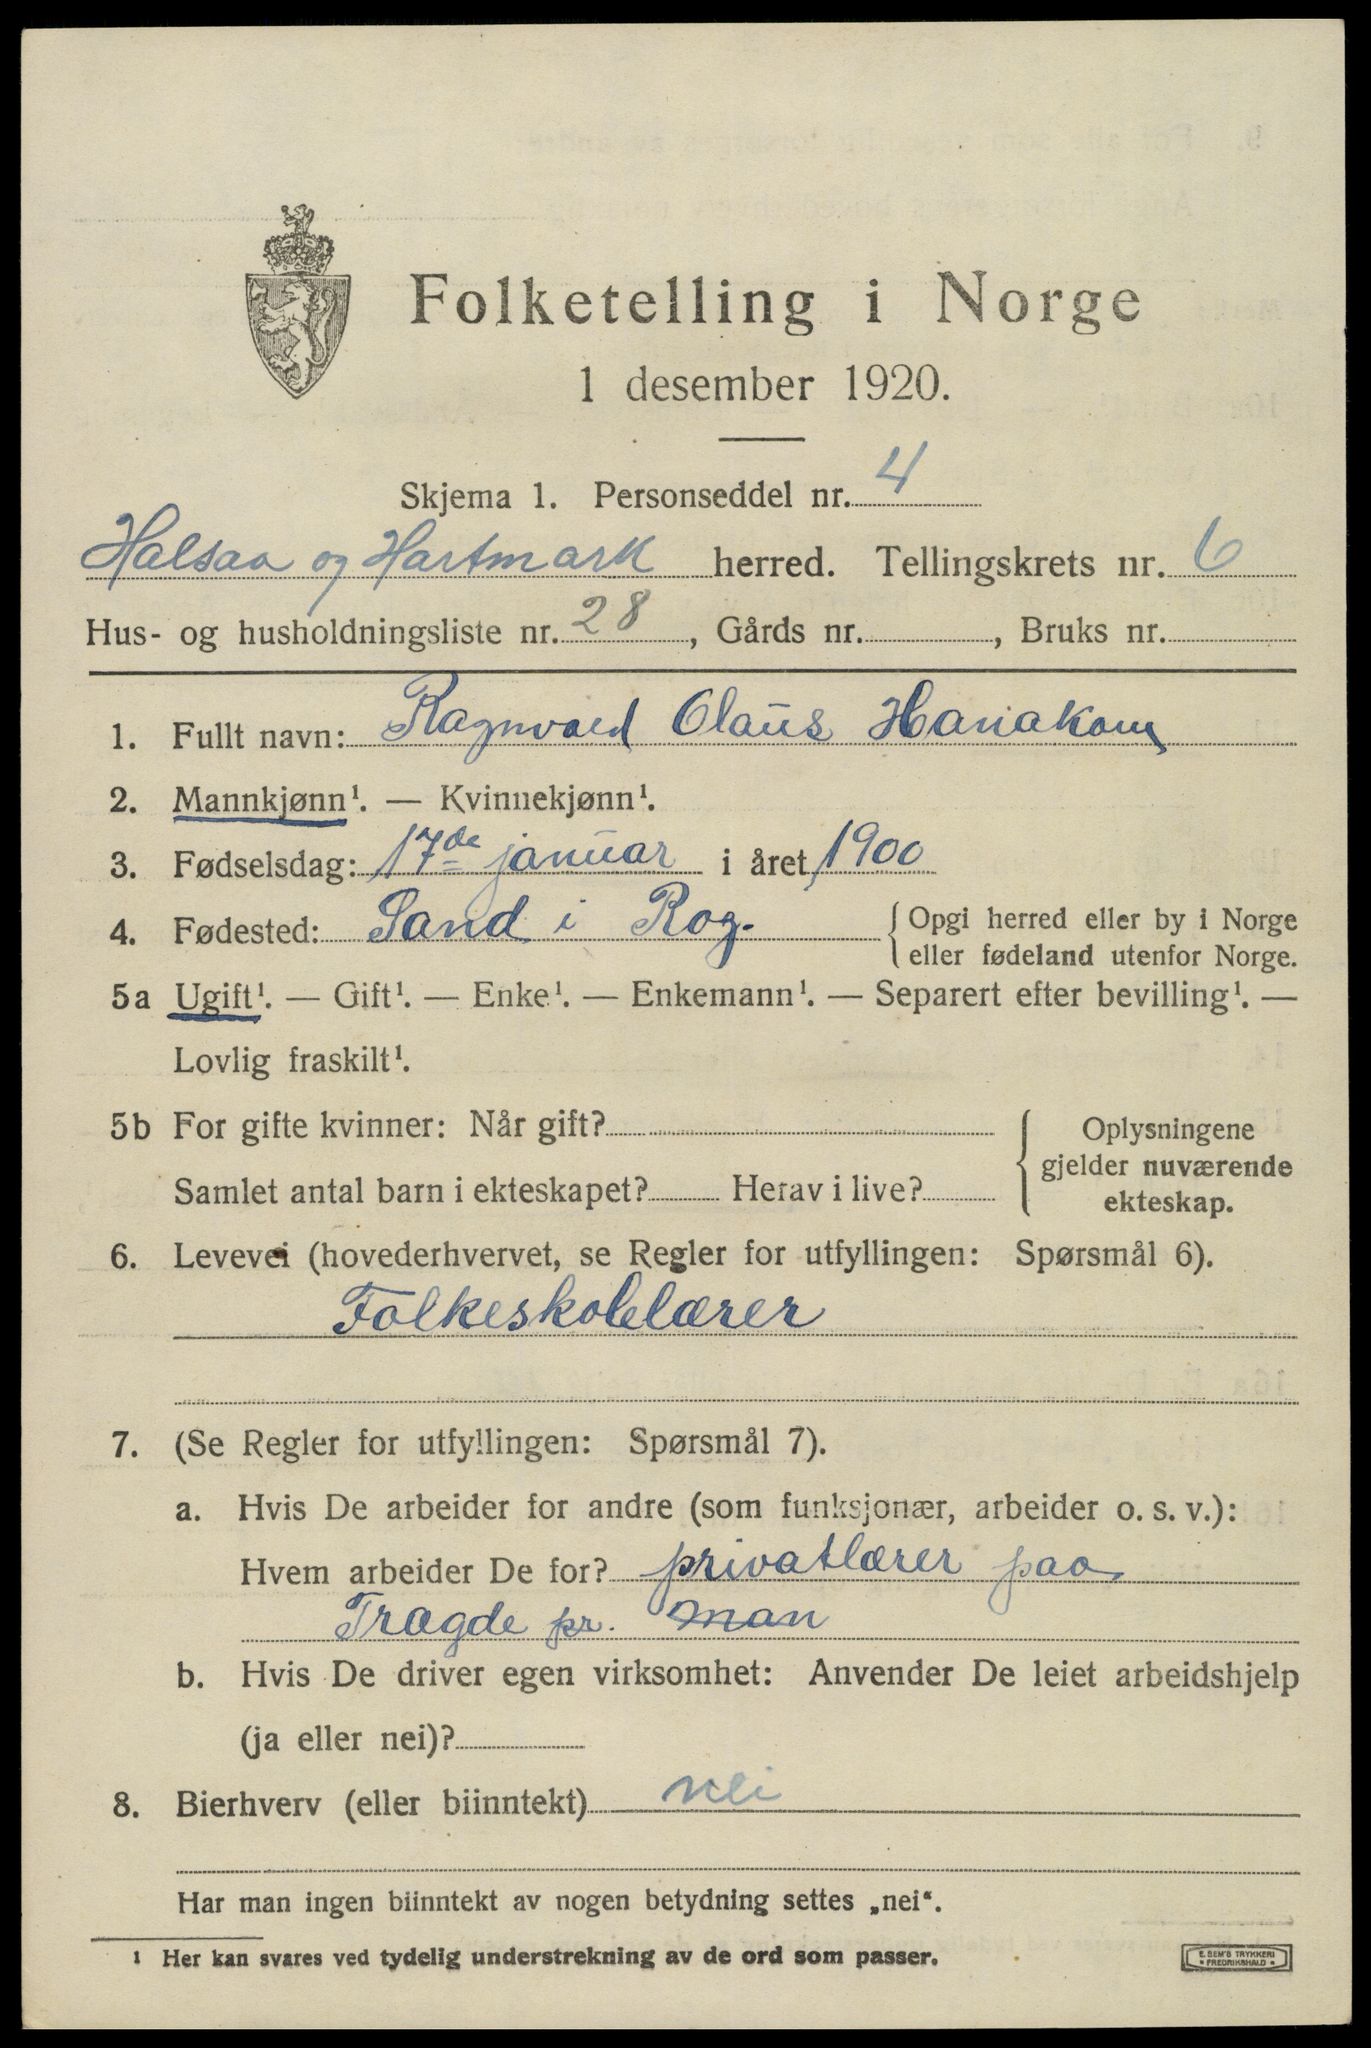 Folketelling i Norge
1 desember 1920.
Skjema 1. Personseddel nr. 4
Halsaa og Hartmark herred. Tellingskrets nr. 6
Hus- og husholdningsliste nr. 28, Gårds nr. , Bruks nr.
1. Fullt navn: Ragnvald Olaus
2. Mannkjønn¹. — Kvinnekjønn¹.
3. Fødselsdag: 17de januar i året 1900
4. Fødested: Sand i Rog. { Opgi herred eller by i Norge
eller fødeland utenfor Norge.
5a Ugift¹. — Gift¹. — Enke¹. — Enkemann¹. — Separert efter bevilling¹. —
Lovlig fraskilt¹.
5b For gifte kvinner: Når gift?
Samlet antal barn i ekteskapet? Herav i live?
Oplysningene
gjelder nuværende
ekteskap.
6. Levevei (hovederhvervet, se Regler for utfyllingen: Spørsmål 6).
Folkeskolelærer
7. (Se Regler for utfyllingen: Spørsmål 7).
a. Hvis De arbeider for andre (som funksjonær, arbeider o. s. v.):
Hvem arbeider De for? privatlærer paa
Tragde pr. Man
b. Hvis De driver egen virksomhet: Anvender De leiet arbeidshjelp
(ja eller nei)?
8. Bierhverv (eller biinntekt) nei
Har man ingen biinntekt av nogen betydning settes „nei“.
¹ Her kan svares ved tydelig understrekning av de ord som passer.
E. SEM'S TRYKKERI
* FREDRIKSHALD *